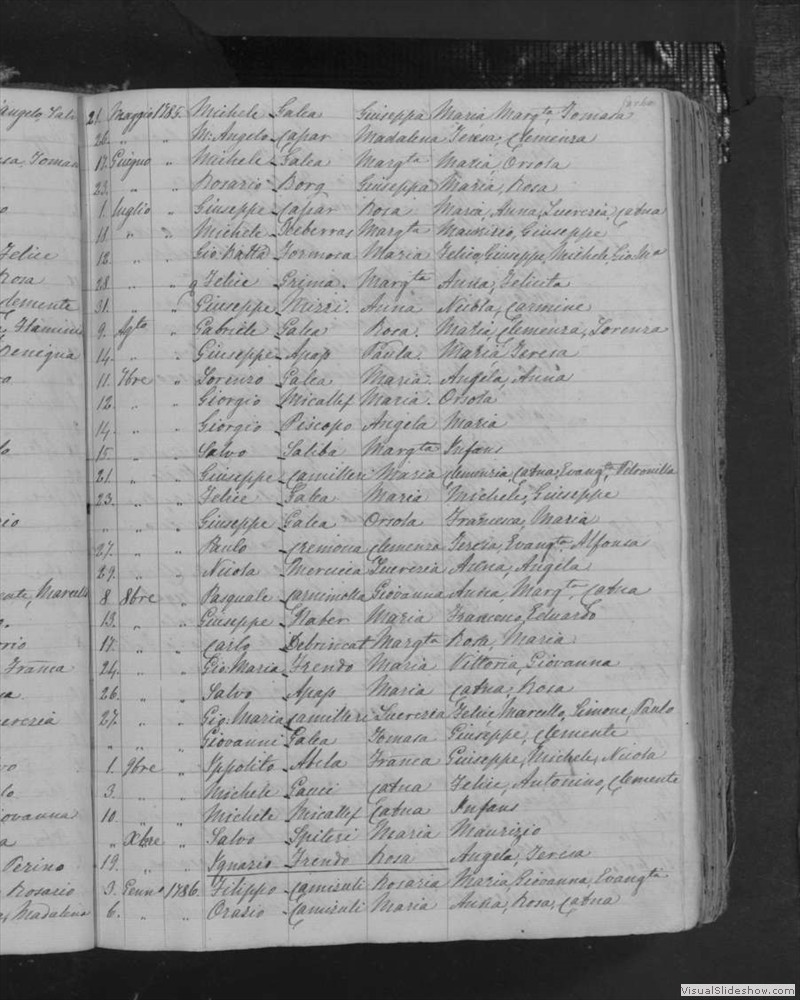 21. Maggio 1785. Michele Galea Giuseppa Maria, Margta, Tomasa
26. " " Ml. Angelo Capar Madalena Teresa, Clemenza
17. Giugno " Michele Galea Margta Maria, Orsola
23. " " Rosario Borg Giuseppa Maria, Rosa
1. luglio " Giuseppe Capar Rosa Maria, Anna, Lucrezia, Catna
11. " " Michele Xeberras Margta Maurizio, Giuseppe
12. " " Gio Batta Formosa Maria Felice, Giuseppe, Michele, Gio Ma
28. " " Felice Grima. Margta Anna, Felicita
31. " " Giuseppe Mizzi. Anna Nicola, Carmine
9. Agto " Gabriele Galea Rosa. Maria, Clemenza, Lorenza
14. " " Giuseppe Apap Paula Maria Teresa
11. 7bre " Lorenzo Galea Maria Angela, Anna
12. " " Giorgio Micallef Maria. Orsola
14. " " Giorgio Piscopo Angela Maria
15. " " Salvo Saliba Margta Infans
21. " " Giuseppe Camilleri Maria Clemenzia, Catna, Evangta, Petronilla
23. " " Felice Galea Maria Michele, Giuseppe
" " " Giuseppe Galea Orsola Francesca, Maria
27. " " Paulo Cremona Clemenza Teresa, Evangta, Alfonsa
29. " " Nicola Lucrezia Anna, Angela
8. 8bre " Pasquale Giovanna Anna, Margta, Catna
13. " " Giuseppe Maria Francesco, Eduardo
17. " " Carlo Debrincat Margta Rosa, Maria
24. " " Gio Maria Frendo Maria Vittoria, Giovanna
26. " " Salvo Apap Maria Catna, Rosa
27. " " Gio. Maria Camilleri Lucrezia Felice, Marcello, Simone, Paulo
" " " Giovanni Galea Tomasa Giuseppe, Clemente
1. 9bre " Ippolito Abela Franca Guiseppe, Michele, Nicola
3. " " Michele Gauci Catna Felice, Antonino, Clemente
10. " " Michele Micallef Catna Infans
" Xbre " Salvo Spiteri Maria Maurizio
19. " " Ignazio Frendo Rosa Angela, Teresa
3. Genno 1786. Filippo Camizuli Rosaria Maria, Giovanna, Evangta
6. " " Orazio Camizuli Maria Anna, Rosa, Catna
VisualSlideshow.com